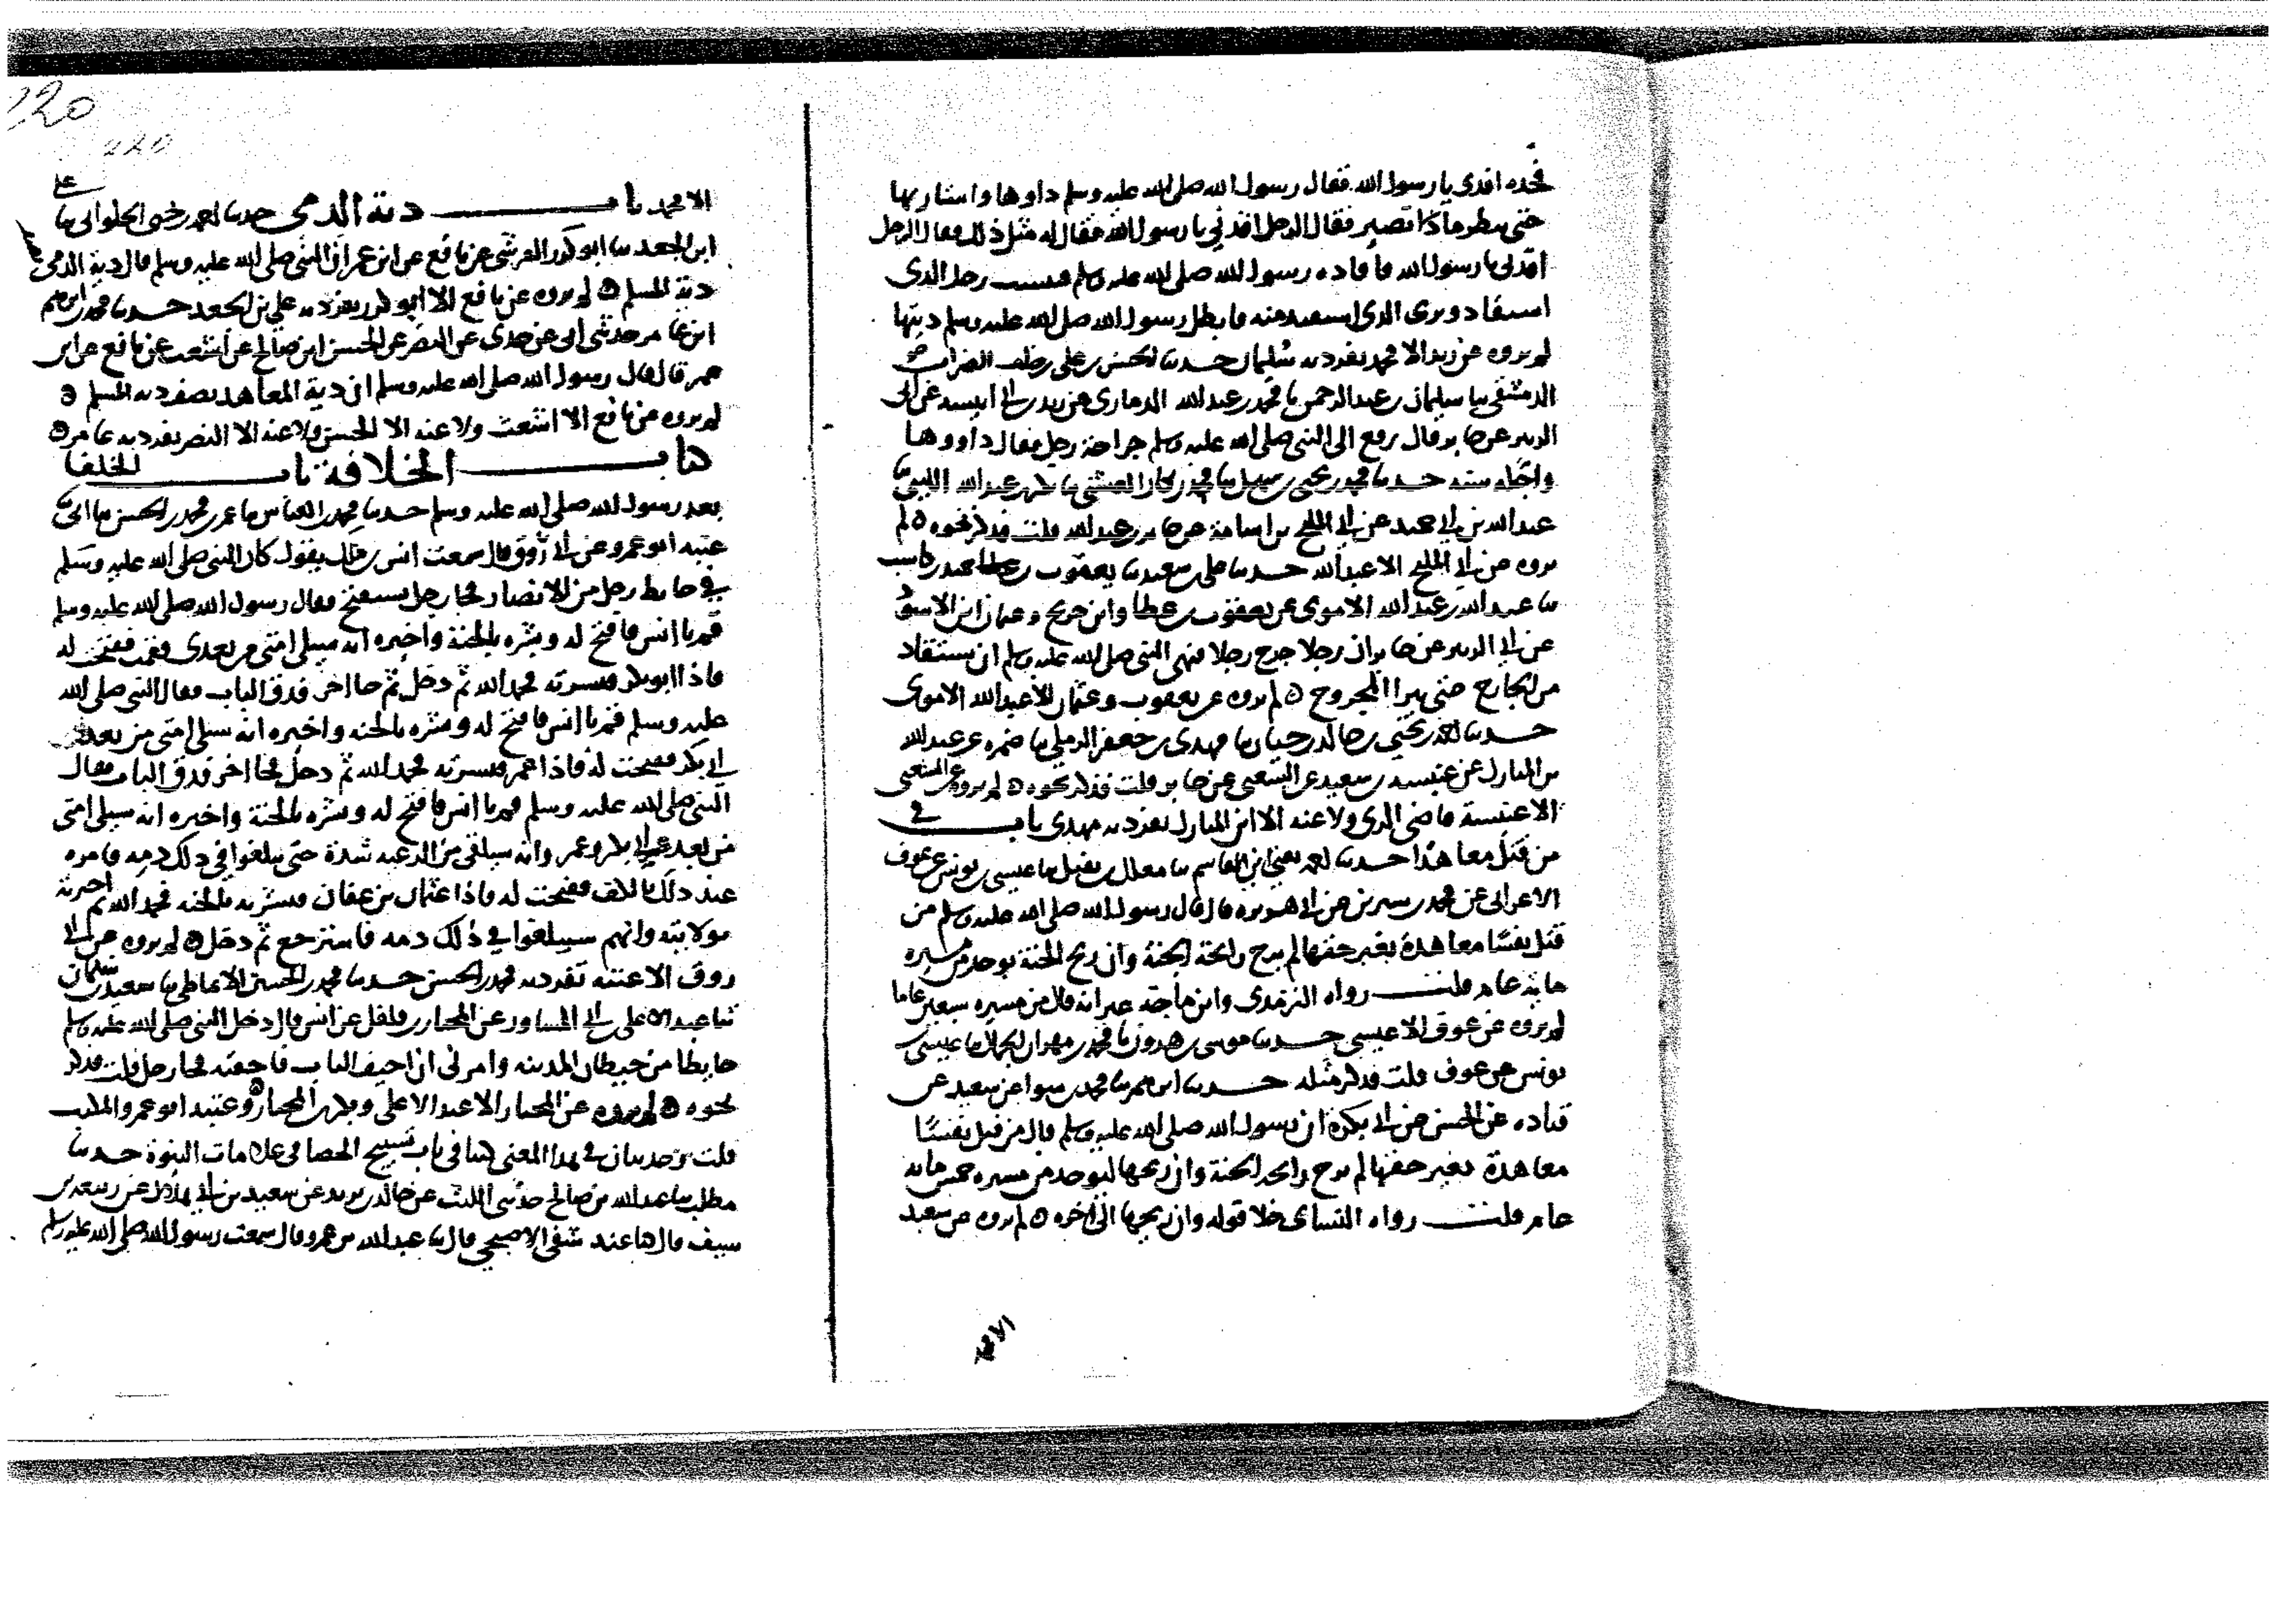 فخده اقدني يا رسول الله فقال رسول الله صلى الله عليه وسلم داووها واستاني بها
حتى ننظر ماذا تصير فقال الرجل اقدني يا رسول الله فقال له مثل ذلك فقال الرجل
اقدني يا رسول الله فاقاده رسول الله صلى الله عليه وسلم فيبست رجل الذي
استقاد وبرى الذي استقيد منه فابطل رسول الله صلى الله عليه وسلم ديتها
لم يروه عن زيد الا محمد تفرد به سليمان حدثنا الحسن بن علي بن خلف
الدمشقي ثنا سليمان بن عبد الرحمن ثنا محمد بن عبد الله الدماري عن يزيد بن ابي انيسه عن ابي
الزبير عن جابر قال رفع الى النبي صلى الله عليه وسلم جراحة رجل فقال داووها
واجله سنه حدثنا محمد بن يحيى بن سهل ثنا محمد بن بكار العيشي
عبد الله بن ابي حميد عن ابي المليح بن اسامة عن جابر بن عبد الله قلت فذكر نحوه لم
يروه عن ابي المليح الا عبد الله حدثنا علي بن سعيد ثنا يعقوب بن حميد بن كاسب
ثنا عبد الله بن عبد الله الاموي عن يعقوب بن عطا وابن جريج وعثمان ابن الاسود
عن ابي الزبير عن جابر ان رجلا جرح رجلا فنهى النبي صلى الله عليه وسلم ان يستقاد
من الجارح حتى يبرا المجروح لم يروه عن يعقوب وعثمان الا عبد الله الاموي
حدثنا احمد بن يحيى بن خالد بن حيان ثنا مهدي بن جعفر الرملي ثنا ضمره عن عبد الله
بن المبارك عن عنبسه بن سعيد عن الشعبي عن جابر قلت فذكر نحوه لم يروه عن الشعبي
الا عنبسة قاضي الري ولا عنه الا ابن المبارك تفرد به مهدي باب في
من قتل معاهدا حدثنا احمد يعني ابن القاسم ثنا معلل بن نفيل ثنا عيسى بن يونس عن عوف
الاعرابي عن محمد بن سيرين عن ابي هريره قال قال رسول الله صلى الله عليه وسلم من
قتل نفسا معاهدة بغير حقها لم يرح رائحة الجنة وان ريح الجنة يوجد من مسيره
ماية عام قلت رواه الترمذي وابن ماجة غير انه قال من مسيره سبعين عاما
لم يروه عن عوف الا عيسى حدثنا موسى بن هرون ثنا محمد بن مهران الجمال ثنا عيسى بن
يونس عن عوف قلت فذكر مثله حدثنا ابرهيم ثنا محمد بن سوا عن سعيد عن
قتاده عن الحسن عن ابي بكرة ان رسول الله صلى الله عليه وسلم قال من قتل نفسا
معاهدة بغير حقها لم يرح رائحه الجنة وان ريحها ليوجد من مسيره خمس مايه
عام قلت رواه النساي خلا قوله وان ريحها الى اخره لم يروه عن سعيد
الا محمد
220
220
الا محمد باب دية الذمي حدثنا احمد بن يحيى الحلواني ثنا علي
ابن الجعد ثنا ابو كرز القرشي عن نافع عن ابن عمر ان النبي صلى الله عليه وسلم قال دية الذمي
دية المسلم لم يروه عن نافع الا ابو كرز تفرد به علي بن الجعد حدثنا محمد بن ابرهيم
ابن عامر حدثني ابي عن جدي عن النضر عن الحسن ابن صالح عن اشعث عن نافع عن ابن
عمر قال قال رسول الله صلى الله عليه وسلم ان دية المعاهد نصف دية المسلم
لم يروه عن نافع الا اشعث ولا عنه الا الحسن ولا عنه الا النضر تفرد به عامر
كتاب الخلافة باب الخلفا
بعد رسول الله صلى الله عليه وسلم حدثنا محمد بن العباس ثنا عمر بن محمد بن الحسن ثنا ابي ثنا
عتبه ابو عمرو عن ابي روق قال سمعت انس بن مالك يقول كان النبي صلى الله عليه وسلم
في حايط رجل من الانصار فجا رجل يستفتح فقال رسول الله صلى الله عليه وسلم
قم يا انس فافتح له وبشره بالجنة واخبره انه سيلي امتي من بعدي فقمت ففتحت له
فاذا ابو بكر فبشرته فحمد الله ثم دخل ثم جا اخر فدق الباب فقال النبي صلى الله
عليه وسلم قم يا انس فافتح له وبشره بالجنه واخبره انه سيلي امتي من بعد
ابي بكر ففتحت له فاذا عمر فبشرته فحمد الله ثم دخل فجا اخر فدق الباب فقال
النبي صلى الله عليه وسلم قم يا انس فافتح له وبشره بالجنة واخبره انه سيلي امتي
من بعد ابي بكر وعمر وانه سيلقى من الرعيه شدة حتى يبلغوا في ذلك دمه فامره
عند ذلك بالكف ففتحت له فاذا عثمان بن عفان فبشرته بالجنه فحمد الله ثم اخبرته
بولايته وانهم سيبلغوا في ذلك دمه فاسترجع ثم دخل لم يروه عن ابي
روق الا عتبه تفرد به محمد بن الحسن حدثنا محمد بن الحسين الانماطي ثنا سعيد بن سليمان
ثنا عبد الاعلى بن ابي المساور عن المختار بن فلفل عن انس قال دخل النبي صلى الله عليه وسلم
حايطا من حيطان المدينه وامرني ان اجيف الباب فاجفته فجا رجل قلت فذكر
نحوه لم يروه عن المختار الا عبد الاعلى وبكر بن المختار وعتبه ابو عمرو
قلت وحديثان في هذا المعنى في باب تسبيح الحصا في علامات النبوة حدثنا
مطلب ثنا عبد الله بن صالح حدثني الليث عن خالد بن يزيد عن سعيد بن ابي هلال عن ربيعه بن
سيف قال كنا عند شفي الاصبحي قال ثنا عبد الله بن عمرو قال سمعت رسول الله صلى الله عليه وسلم